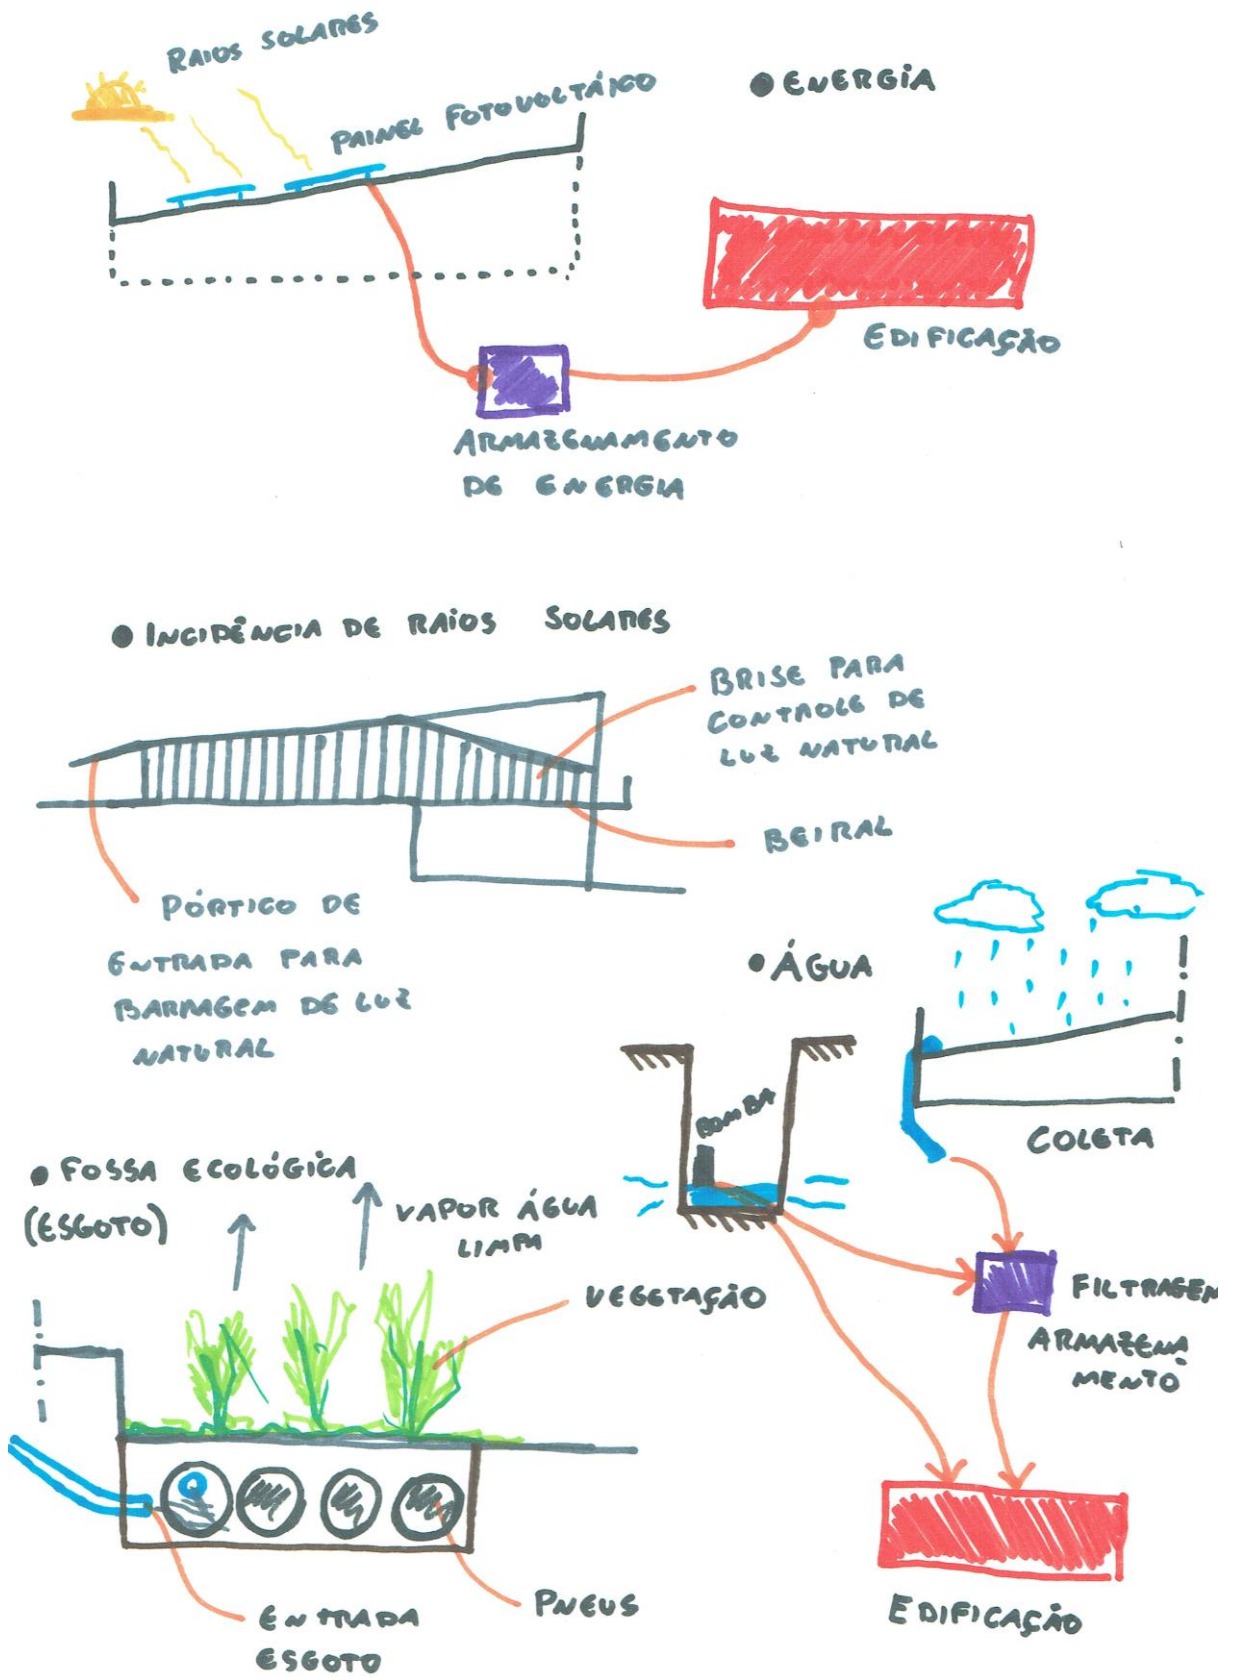 RAIOS SOLARES
PAINEL FOTOVOLTÁICO
● ENERGIA
EDIFICAÇÃO
ARMAZENAMENTO
DE ENERGIA
● INCIDÊNCIA DE RAIOS SOLARES
BRISE PARA
CONTROLE DE
LUZ NATURAL
BEIRAL
PÓRTICO DE
ENTRADA PARA
BARRAGEM DE LUZ
NATURAL
● ÁGUA
BOMBA
COLETA
FILTRAGEM
ARMAZENA
MENTO
EDIFICAÇÃO
● FOSSA ECOLÓGICA
(ESGOTO)
VAPOR ÁGUA
LIMPA
VEGETAÇÃO
PNEUS
ENTRADA
ESGOTO